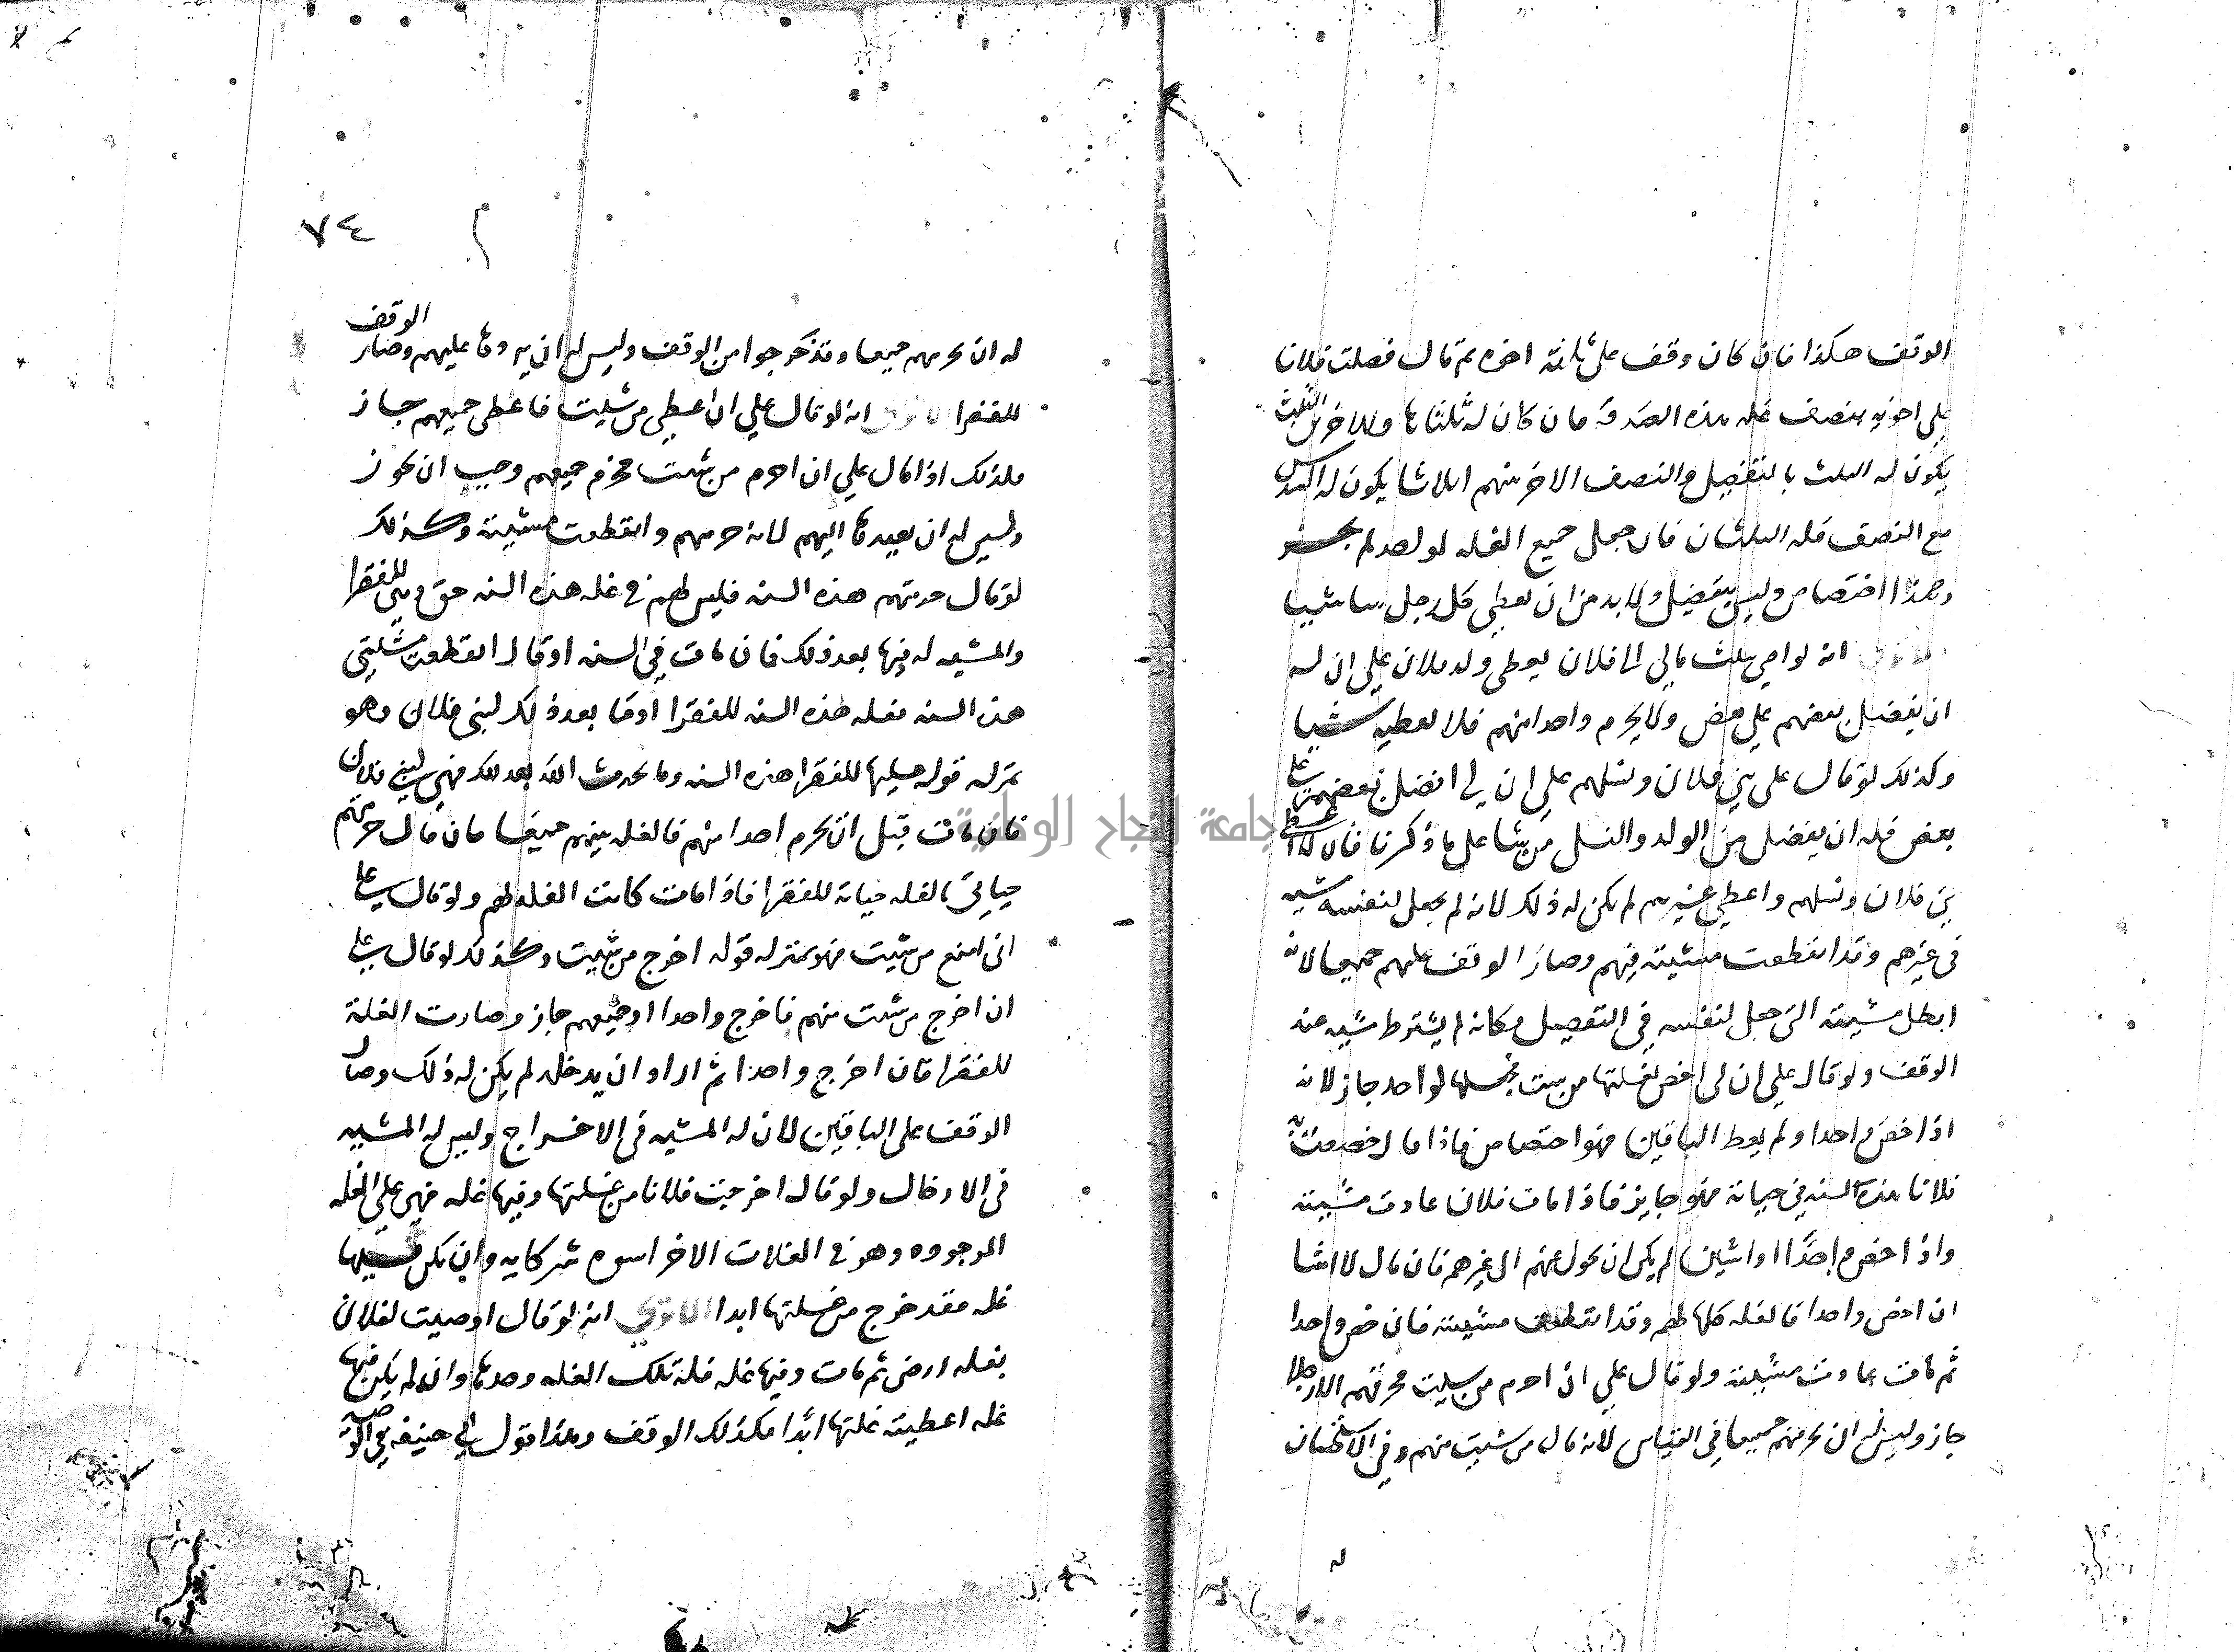 الوقف هكذا فان كان وقف على ثلاثة اخوه ثم قال فضلت فلانا
على اخويه بنصف غله هذه الصدقة فان كان له ثلثاها وللاخرين الثلث
يكون له الثلث بالتفضيل والنصف الاخر بينهم اثلاثا يكون له السدس
مع النصف فله الثلثان فان جعل جميع الغله لواحد لم يجز
وهذا اختصاص وليس بتفضيل ولا بد من ان يعطي كل رجل شيا
الا ترى انه لو اوصي بثلث مالي الى فلان يعطي ولد فلان على ان له
ان يفضل بعضهم على بعض ولا يحرم واحدا منهم فلا يعطيه شيا
وكذلك لو قال على بني فلان ونسلهم على ان لي افضل بعضهم على
بعض فله ان يفضل من الولد والنسل من شا على ما ذكرنا فان قال لا اعطي
بني فلان ونسلهم واعطي غيرهم لم يكن له ذلك لانه لم يجعل لنفسه مشيه
في غيرهم وقد انقطعت مشيته فيهم وصار الوقف عليهم جميعا لانه
ابطل مشيته التي جعل لنفسه في التفضيل فكانه لم يشترط مشيه عند
الوقف ولو قال على ان لي اخص بغلتها من شيت فجعلها لواحد جاز لانه
اذا خص واحدا ولم يعط الباقين فهو اختصاص فاذا قال خصصت
فلانا بهذه السنه في حياته فهو جايز فاذا مات فلان عادت مشيته
واذا خص واحدا او اثنين لم يكن ان يحول عنهم الى غيرهم فان قال لا اشا
ان اخص واحدا فالغله كلها لهم وقد انقطعت مشيته فان خص واحدا
ثم مات عادت مشيته ولو قال على ان احرم من شيت فحرمهم الا رجلا
جاز وليس له ان يحرمهم جميعا في القياس لانه قال من شيت منهم وفي الاستحسان
٧٤
له ان يحرمهم جميعا وقد خرجوا من الوقف وليس له ان يردها عليهم وصار الوقف
للفقرا الا ترى انه لو قال على ان اعطي من شيت فاعطى جميعهم جاز
فلذلك اذا قال على ان احرم من شيت فحرم جميعهم وجب ان يجوز
وليس له ان يعيدها اليهم لانه حرمهم وانقطعت مشيته وكذلك
لو قال حرمتهم هذه السنه فليس لهم في غله هذه السنه حق وهي للفقرا
والمشيه له فيها بعد ذلك فان مات في السنه او قال انقطعت مشيتي
هذه السنه فغله هذه السنه للفقرا وما بعد ذلك لبني فلان وهو
بمنزله قوله غلتها للفقرا هذه السنه وما يحدث الله بعد ذلك فهي لبني فلان
فان مات قبل ان يحرم احدا منهم فالغله بينهم جميعا فان قال حرمتهم
حياتي فالغله حياته للفقرا فاذا مات كانت الغله لهم ولو قال على
اني امنع من شيت فهو بمنزله قوله اخرج من شيت وكذلك لو قال على
ان اخرج من شيت منهم فاخرج واحدا او جميعهم جاز وصارت الغلة
للفقرا فان اخرج واحدا ثم اراد ان يدخله لم يكن له ذلك وصار
الوقف على الباقين لان له المشيه في الاخراج وليس له المشيه
في الادخال ولو قال اخرجت فلانا من غلتها وفيها غله فهي على الغله
الموجوده وهو في الغلات الاخر اسوه شركايه وان لم يكن فيها
غله فقد خرج من غلتها ابدا الا ترى انه لو قال اوصيت لفلان
بغله ارض ثم مات وفيها غله فله تلك الغله وحدها وان لم يكن فيها
غله اعطيته غلتها ابدا فكذلك الوقف وهذا قول ابي حنيفه في الوصيه
جامعة النجاح الوطنية